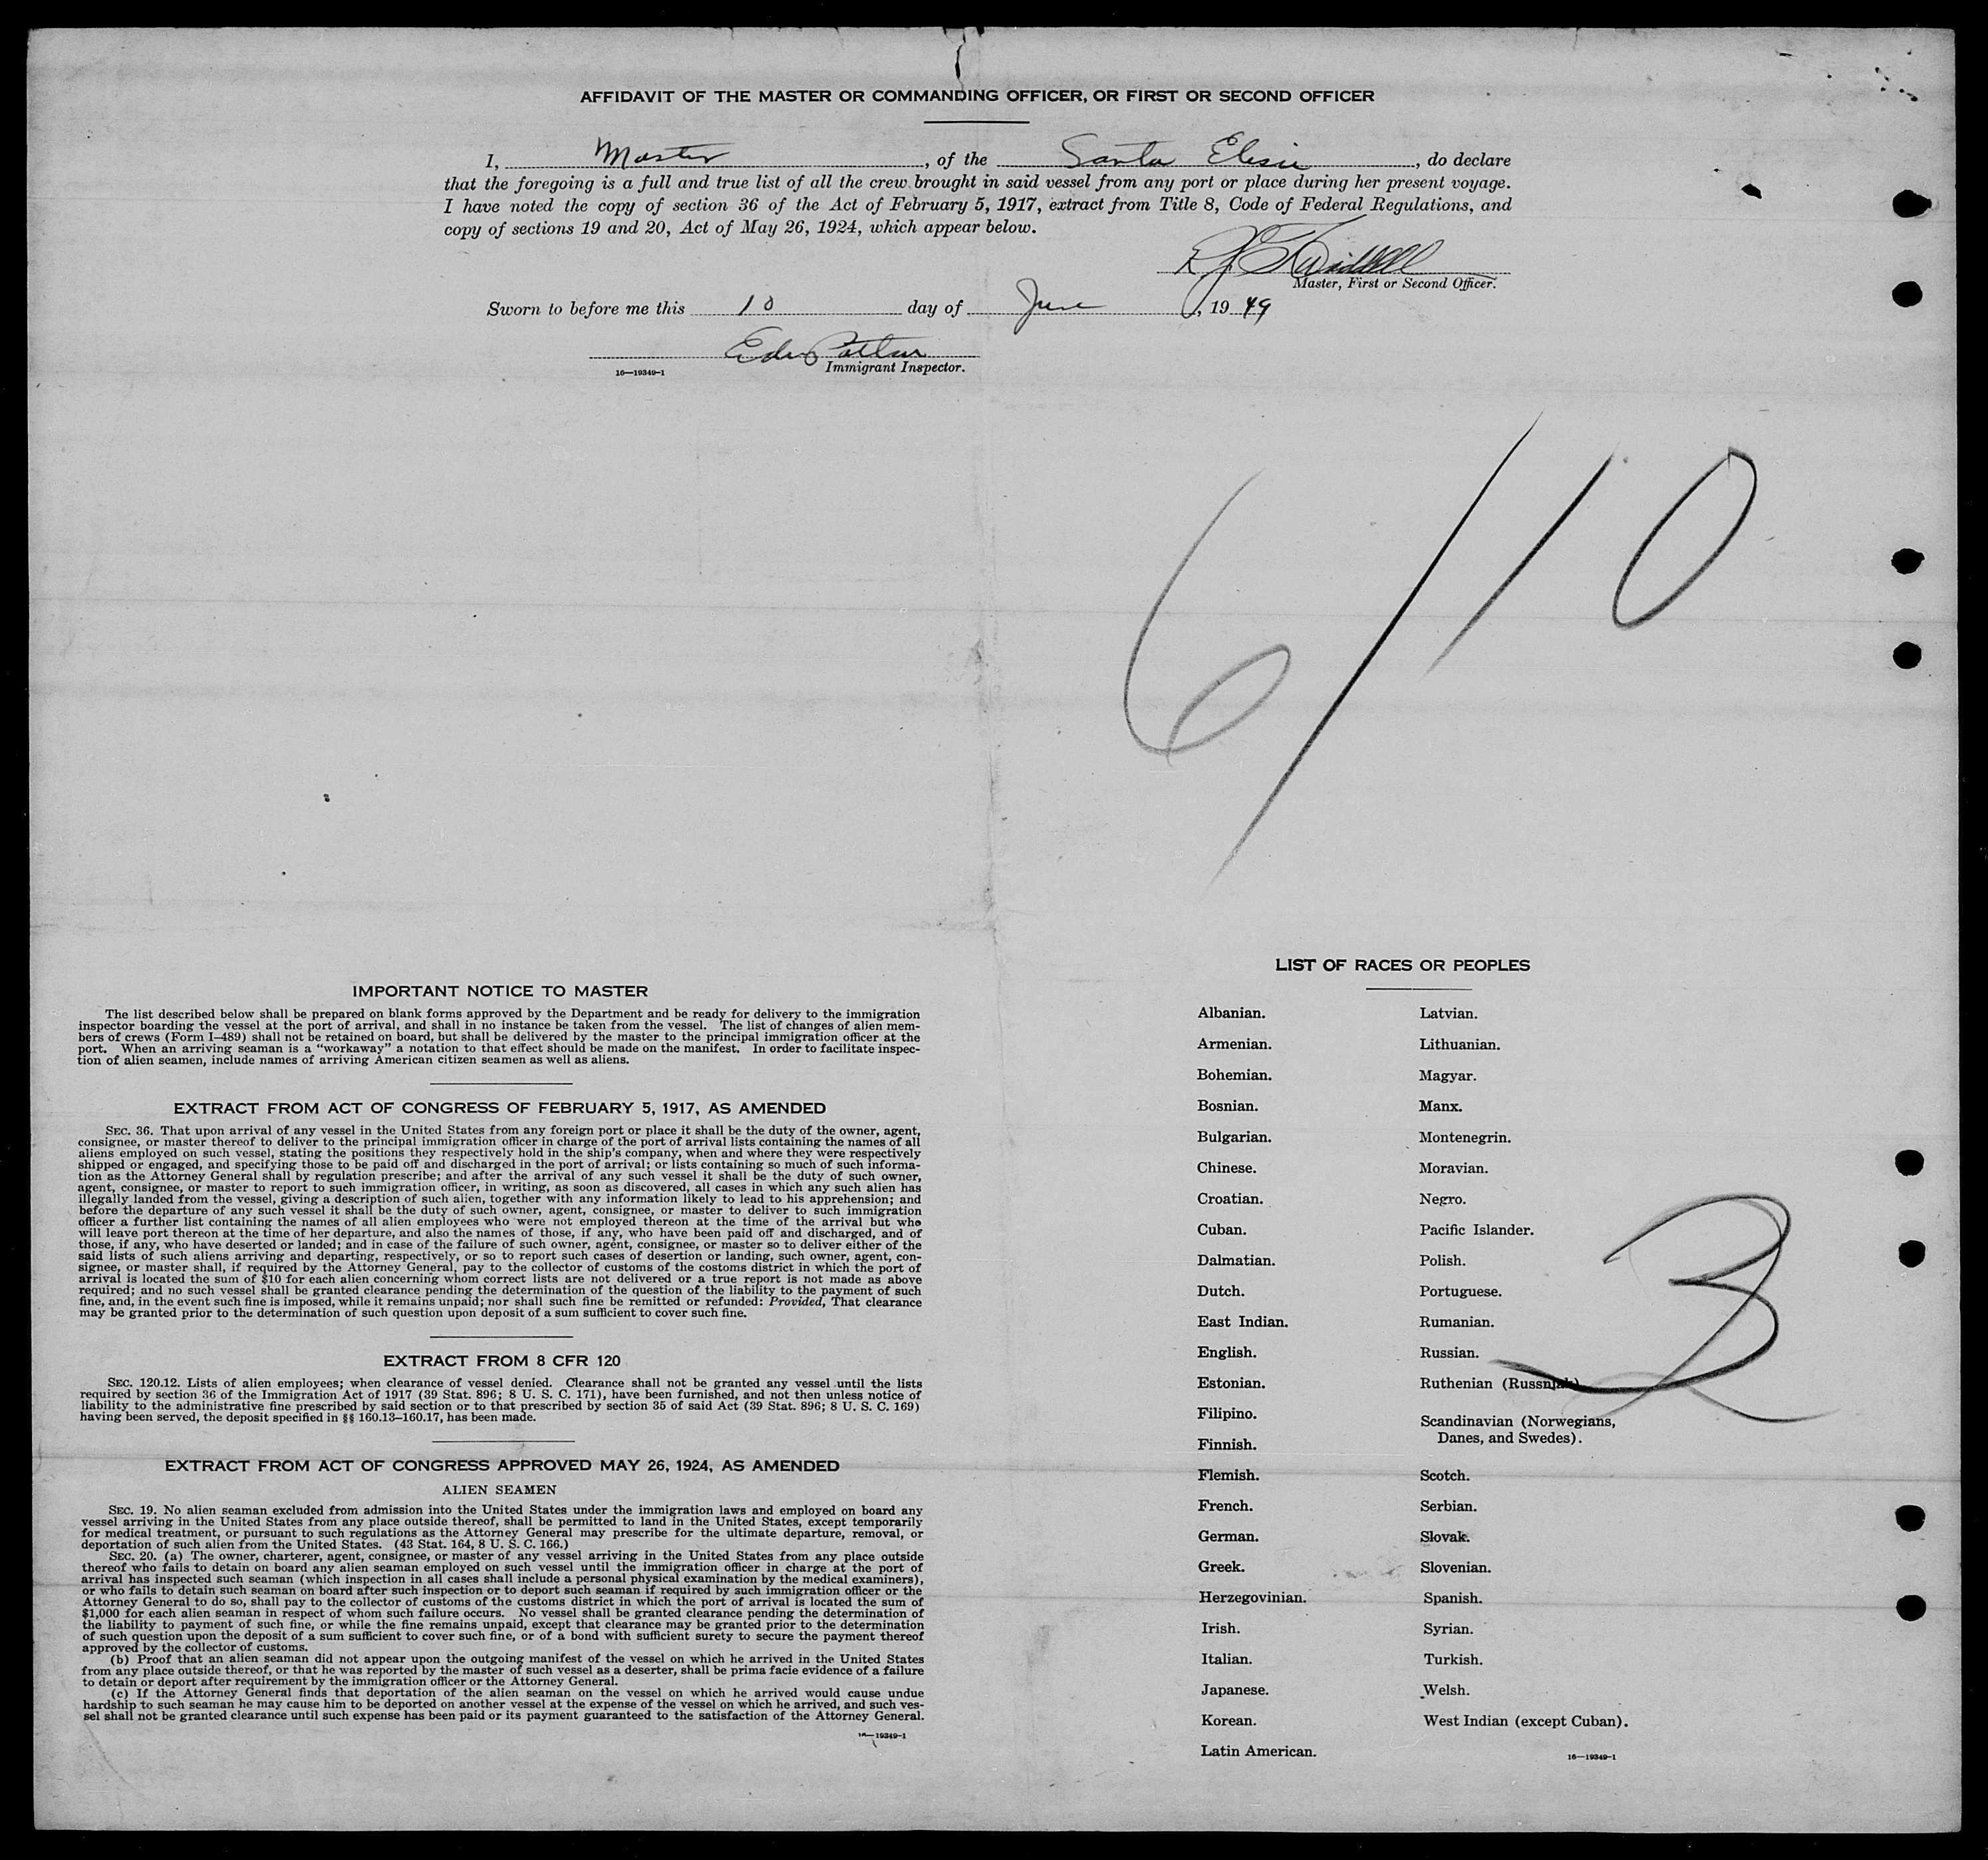 AFFIDAVIT OF THE MASTER OR COMMANDING OFFICER, OR FIRST OR SECOND OFFICER
I, Master, of the Santa Elisa, do declare
that the foregoing is a full and true list of all the crew brought in said vessel from any port or place during her present voyage.
I have noted the copy of section 36 of the Act of February 5, 1917, extract from Title 8, Code of Federal Regulations, and
copy of sections 19 and 20, Act of May 26, 1924, which appear below.
Master, First or Second Officer.
Sworn to before me this 10 day of June, 1949
Immigrant Inspector.
16—19349-1
6/10
IMPORTANT NOTICE TO MASTER
The list described below shall be prepared on blank forms approved by the Department and be ready for delivery to the immigration
inspector boarding the vessel at the port of arrival, and shall in no instance be taken from the vessel. The list of changes of alien mem-
bers of crews (Form I-489) shall not be retained on board, but shall be delivered by the master to the principal immigration officer at the
port. When an arriving seaman is a "workaway" a notation to that effect should be made on the manifest. In order to facilitate inspec-
tion of alien seamen, include names of arriving American citizen seamen as well as aliens.
EXTRACT FROM ACT OF CONGRESS OF FEBRUARY 5, 1917, AS AMENDED
SEC. 36. That upon arrival of any vessel in the United States from any foreign port or place it shall be the duty of the owner, agent,
consignee, or master thereof to deliver to the principal immigration officer in charge of the port of arrival lists containing the names of all
aliens employed on such vessel, stating the positions they respectively hold in the ship's company, when and where they were respectively
shipped or engaged, and specifying those to be paid off and discharged in the port of arrival; or lists containing so much of such informa-
tion as the Attorney General shall by regulation prescribe; and after the arrival of any such vessel it shall be the duty of such owner,
agent, consignee, or master to report to such immigration officer, in writing, as soon as discovered, all cases in which any such alien has
illegally landed from the vessel, giving a description of such alien, together with any information likely to lead to his apprehension; and
before the departure of any such vessel it shall be the duty of such owner, agent, consignee, or master to deliver to such immigration
officer a further list containing the names of all alien employees who were not employed thereon at the time of the arrival but who
will leave port thereon at the time of her departure, and also the names of those, if any, who have been paid off and discharged, and of
those, if any, who have deserted or landed; and in case of the failure of such owner, agent, consignee, or master so to deliver either of the
said lists of such aliens arriving and departing, respectively, or so to report such cases of desertion or landing, such owner, agent, con-
signee, or master shall, if required by the Attorney General, pay to the collector of customs of the costoms district in which the port of
arrival is located the sum of $10 for each alien concerning whom correct lists are not delivered or a true report is not made as above
required; and no such vessel shall be granted clearance pending the determination of the question of the liability to the payment of such
fine, and, in the event such fine is imposed, while it remains unpaid; nor shall such fine be remitted or refunded: Provided, That clearance
may be granted prior to the determination of such question upon deposit of a sum sufficient to cover such fine.
EXTRACT FROM 8 CFR 120
SEC. 120.12. Lists of alien employees; when clearance of vessel denied. Clearance shall not be granted any vessel until the lists
required by section 36 of the Immigration Act of 1917 (39 Stat. 896; 8 U. S. C. 171), have been furnished, and not then unless notice of
liability to the administrative fine prescribed by said section or to that prescribed by section 35 of said Act (39 Stat. 896; 8 U. S. C. 169)
having been served, the deposit specified in §§ 160.13-160.17, has been made.
EXTRACT FROM ACT OF CONGRESS APPROVED MAY 26, 1924, AS AMENDED
ALIEN SEAMEN
SEC. 19. No alien seaman excluded from admission into the United States under the immigration laws and employed on board any
vessel arriving in the United States from any place outside thereof, shall be permitted to land in the United States, except temporarily
for medical treatment, or pursuant to such regulations as the Attorney General may prescribe for the ultimate departure, removal, or
deportation of such alien from the United States. (43 Stat. 164, 8 U. S. C. 166.)
SEC. 20. (a) The owner, charterer, agent, consignee, or master of any vessel arriving in the United States from any place outside
thereof who fails to detain on board any alien seaman employed on such vessel until the immigration officer in charge at the port of
arrival has inspected such seaman (which inspection in all cases shall include a personal physical examination by the medical examiners),
or who fails to detain such seaman on board after such inspection or to deport such seaman if required by such immigration officer or the
Attorney General to do so, shall pay to the collector of customs of the customs district in which the port of arrival is located the sum of
$1,000 for each alien seaman in respect of whom such failure occurs. No vessel shall be granted clearance pending the determination of
the liability to payment of such fine, or while the fine remains unpaid, except that clearance may be granted prior to the determination
of such question upon the deposit of a sum sufficient to cover such fine, or of a bond with sufficient surety to secure the payment thereof
approved by the collector of customs.
(b) Proof that an alien seaman did not appear upon the outgoing manifest of the vessel on which he arrived in the United States
from any place outside thereof, or that he was reported by the master of such vessel as a deserter, shall be prima facie evidence of a failure
to detain or deport after requirement by the immigration officer or the Attorney General.
(c) If the Attorney General finds that deportation of the alien seaman on the vessel on which he arrived would cause undue
hardship to such seaman he may cause him to be deported on another vessel at the expense of the vessel on which he arrived, and such ves-
sel shall not be granted clearance until such expense has been paid or its payment guaranteed to the satisfaction of the Attorney General.
16—19349-1
LIST OF RACES OR PEOPLES
Albanian.
Armenian.
Bohemian.
Bosnian.
Bulgarian.
Chinese.
Croatian.
Cuban.
Dalmatian.
Dutch.
East Indian.
English.
Estonian.
Filipino.
Finnish.
Flemish.
French.
German.
Greek.
Herzegovinian.
Irish.
Italian.
Japanese.
Korean.
Latin American.
Latvian.
Lithuanian.
Magyar.
Manx.
Montenegrin.
Moravian.
Negro.
Pacific Islander.
Polish.
Portuguese.
Rumanian.
Russian.
Ruthenian (Russniak).
Scandinavian (Norwegians,
Danes, and Swedes).
Scotch.
Serbian.
Slovak.
Slovenian.
Spanish.
Syrian.
Turkish.
Welsh.
West Indian (except Cuban).
16—19349-1
3